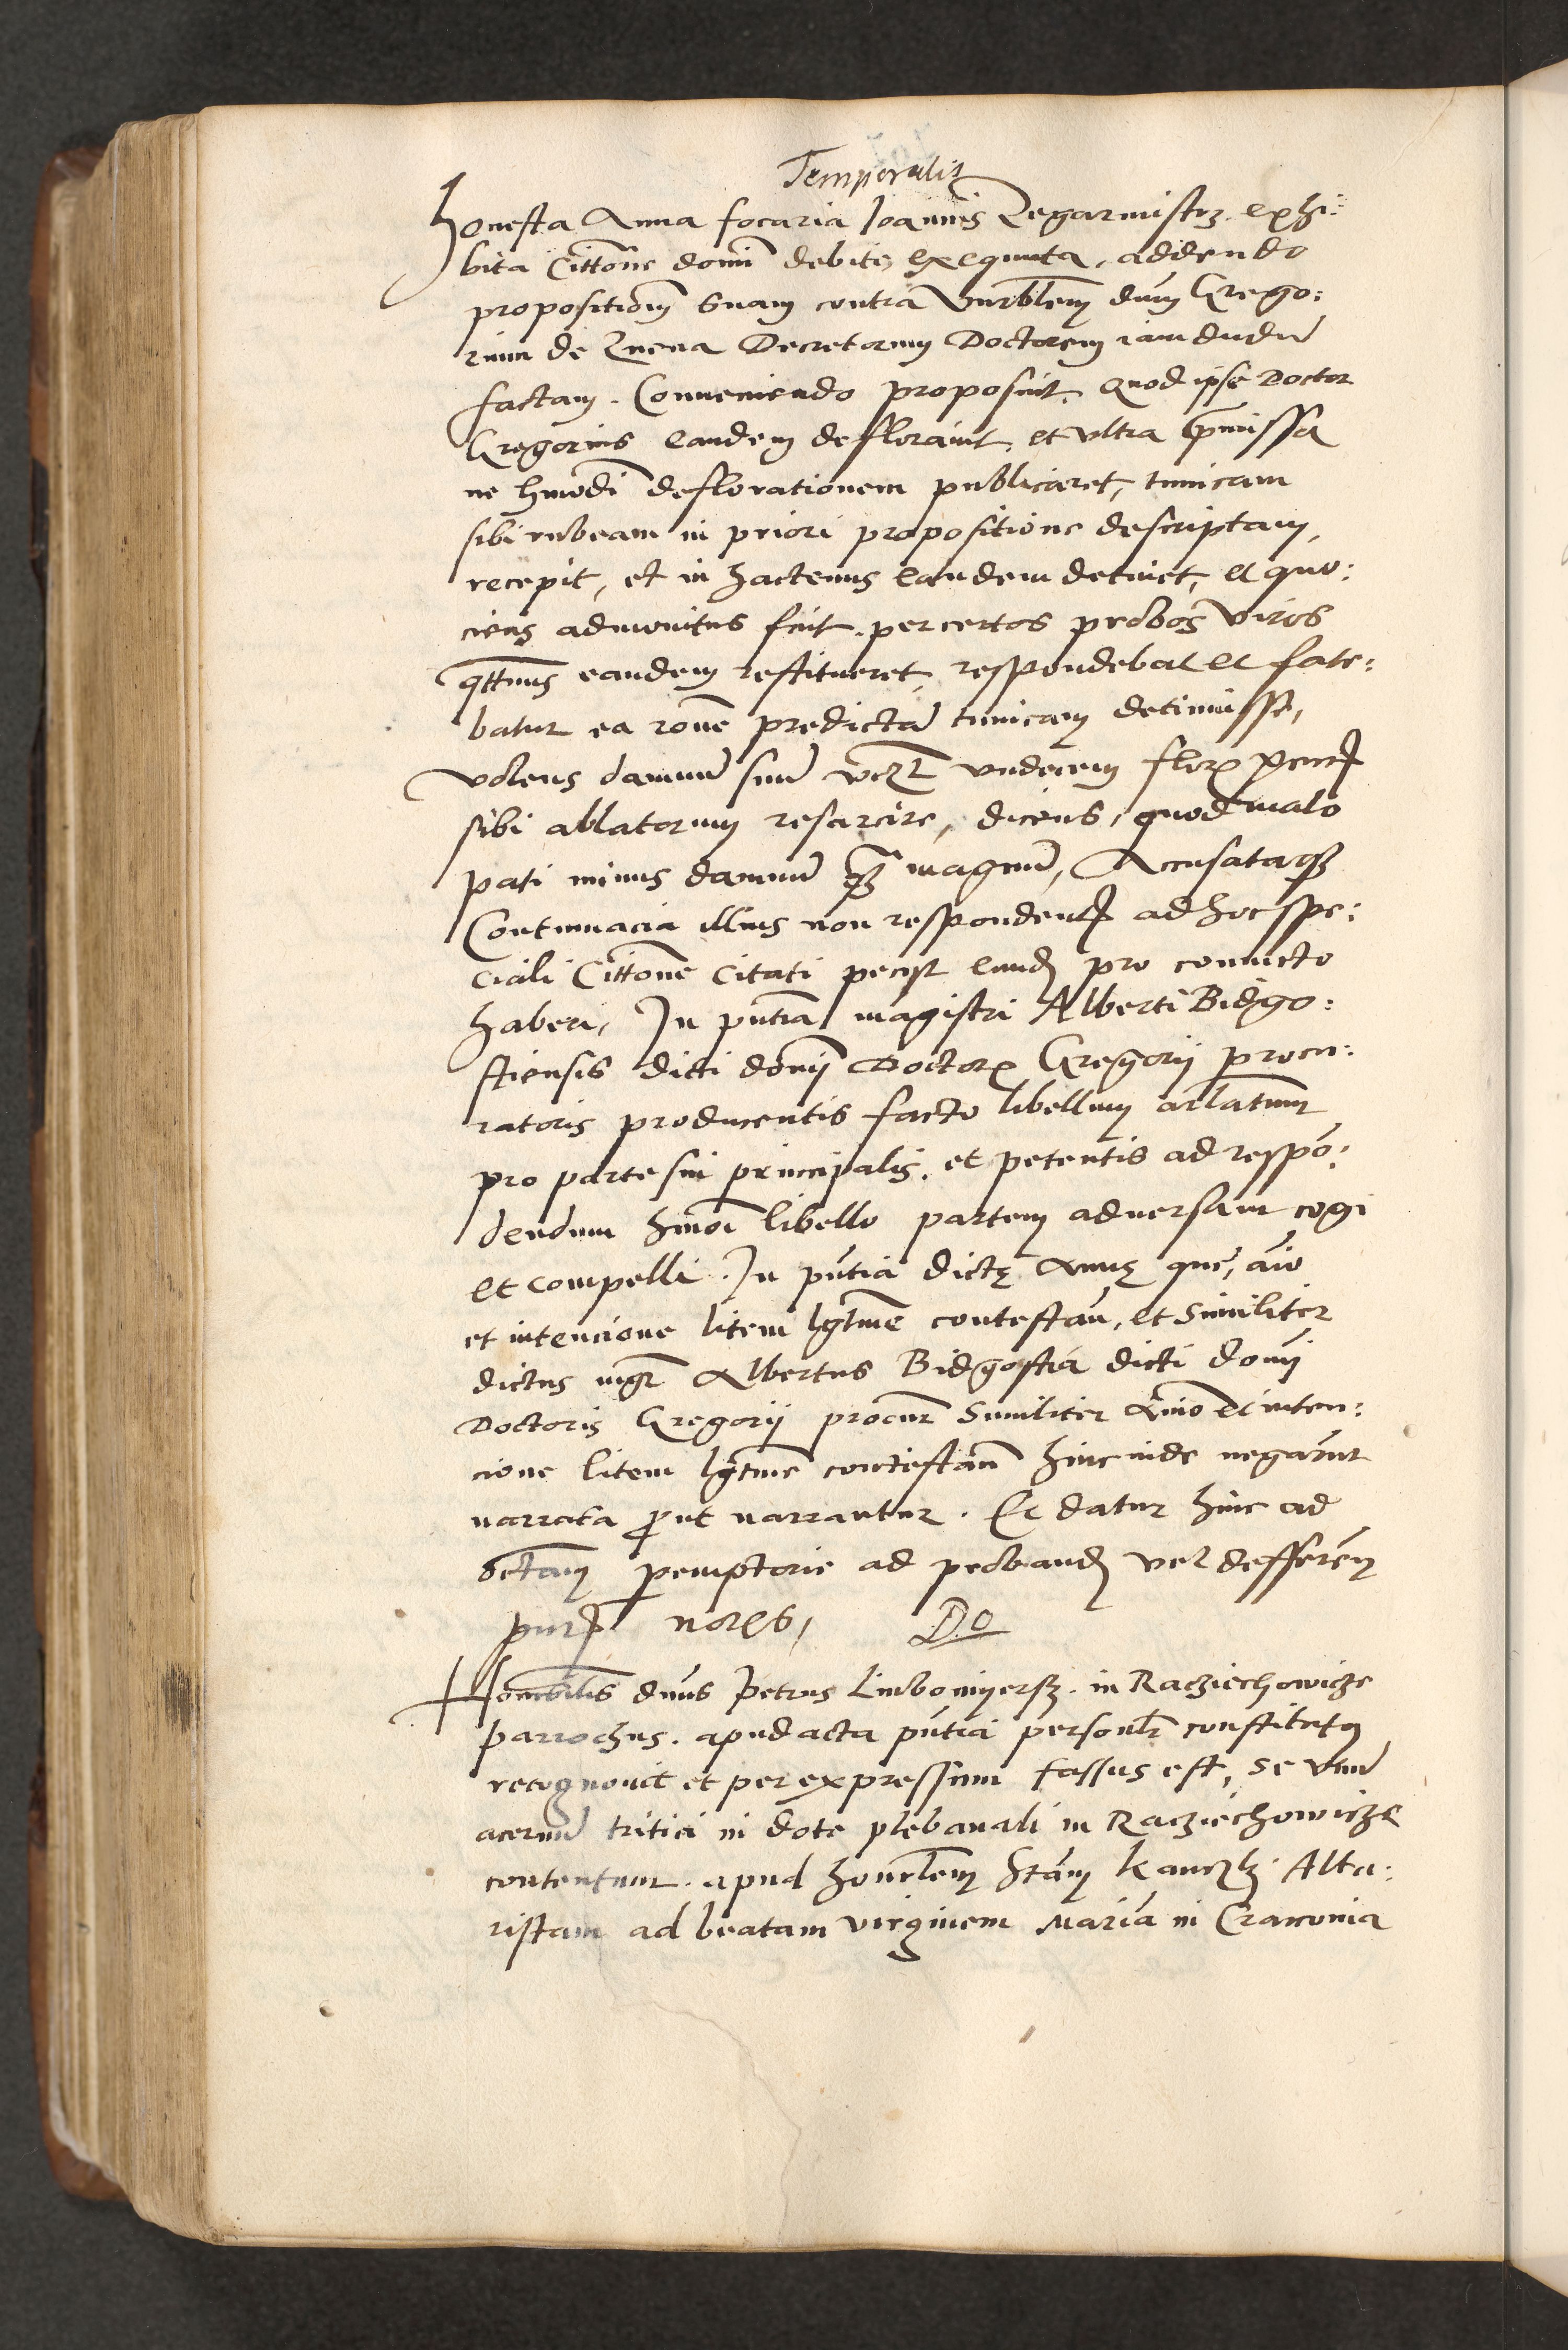 Temporalis
Honesta Anna focaria Joannis Zegarmistrz. exhi:
bita Cittone domi debite exequuta, addendo
propositiom suam contra Vnrblem dnm Grego:
rium de Decretorum Doctorem iam dudu
factam. Conueniendo proposuit. Quod ipse Doctor
Gregorius eandem deflorauit, et vltra pmissa
ne hmodi deflorationem publicaret, tunicam
sibi rubeam in priori propositione descriptam,
recepit, et in hactenus eandem detinet, et quo:
ciens admonitus fuit. per certos probos viros
qttnus eandem restitueret, respondebat et fate:
batur ea rone predicta tunicam detinuisse,
volens damnu suu vndecim flor
sibi ablatorum resarcire, dicens, quod malo
pati minus damnu magnu, Accusataq
Contumacia illius non respondent ad hoc spe:
ciali Cittone Citati pecyt eund pro conuicto
haberi, In pntia magistri Alberti Bidgo:
stiensis dicti domi Doctor Gregorij procu:
ratoris producentis facto libellum arlatum
pro parte sui principalis. et petentis ad respo:
dendum hmoi libello partem aduersam cogi
et compelli. In pntia dictę Annę que, aio
et intencione litem lgtme contestan, et Similiter
dictus mgr Albertus Bidgostia dicti domi
Doctoris Gregorij procur Similiter Animo et inten:
cione litem lgtme contestan hincinde negarut
narrata put narrantur. Et datur hinc ad
octam pemptorie ad proband vel defferen
Do
Honorabilis dnus Petrus Lubomyersz. in Racziechowicze
parrochus. apud acta pntia personlr constitutq
recognouit et per expressum fassus est, se vnu
aceruu tritici in dote plebanali in Racziechowicze
contentum. apud honrlem Stam Alta:
ristam ad beatam virginem Maria in Cracouia